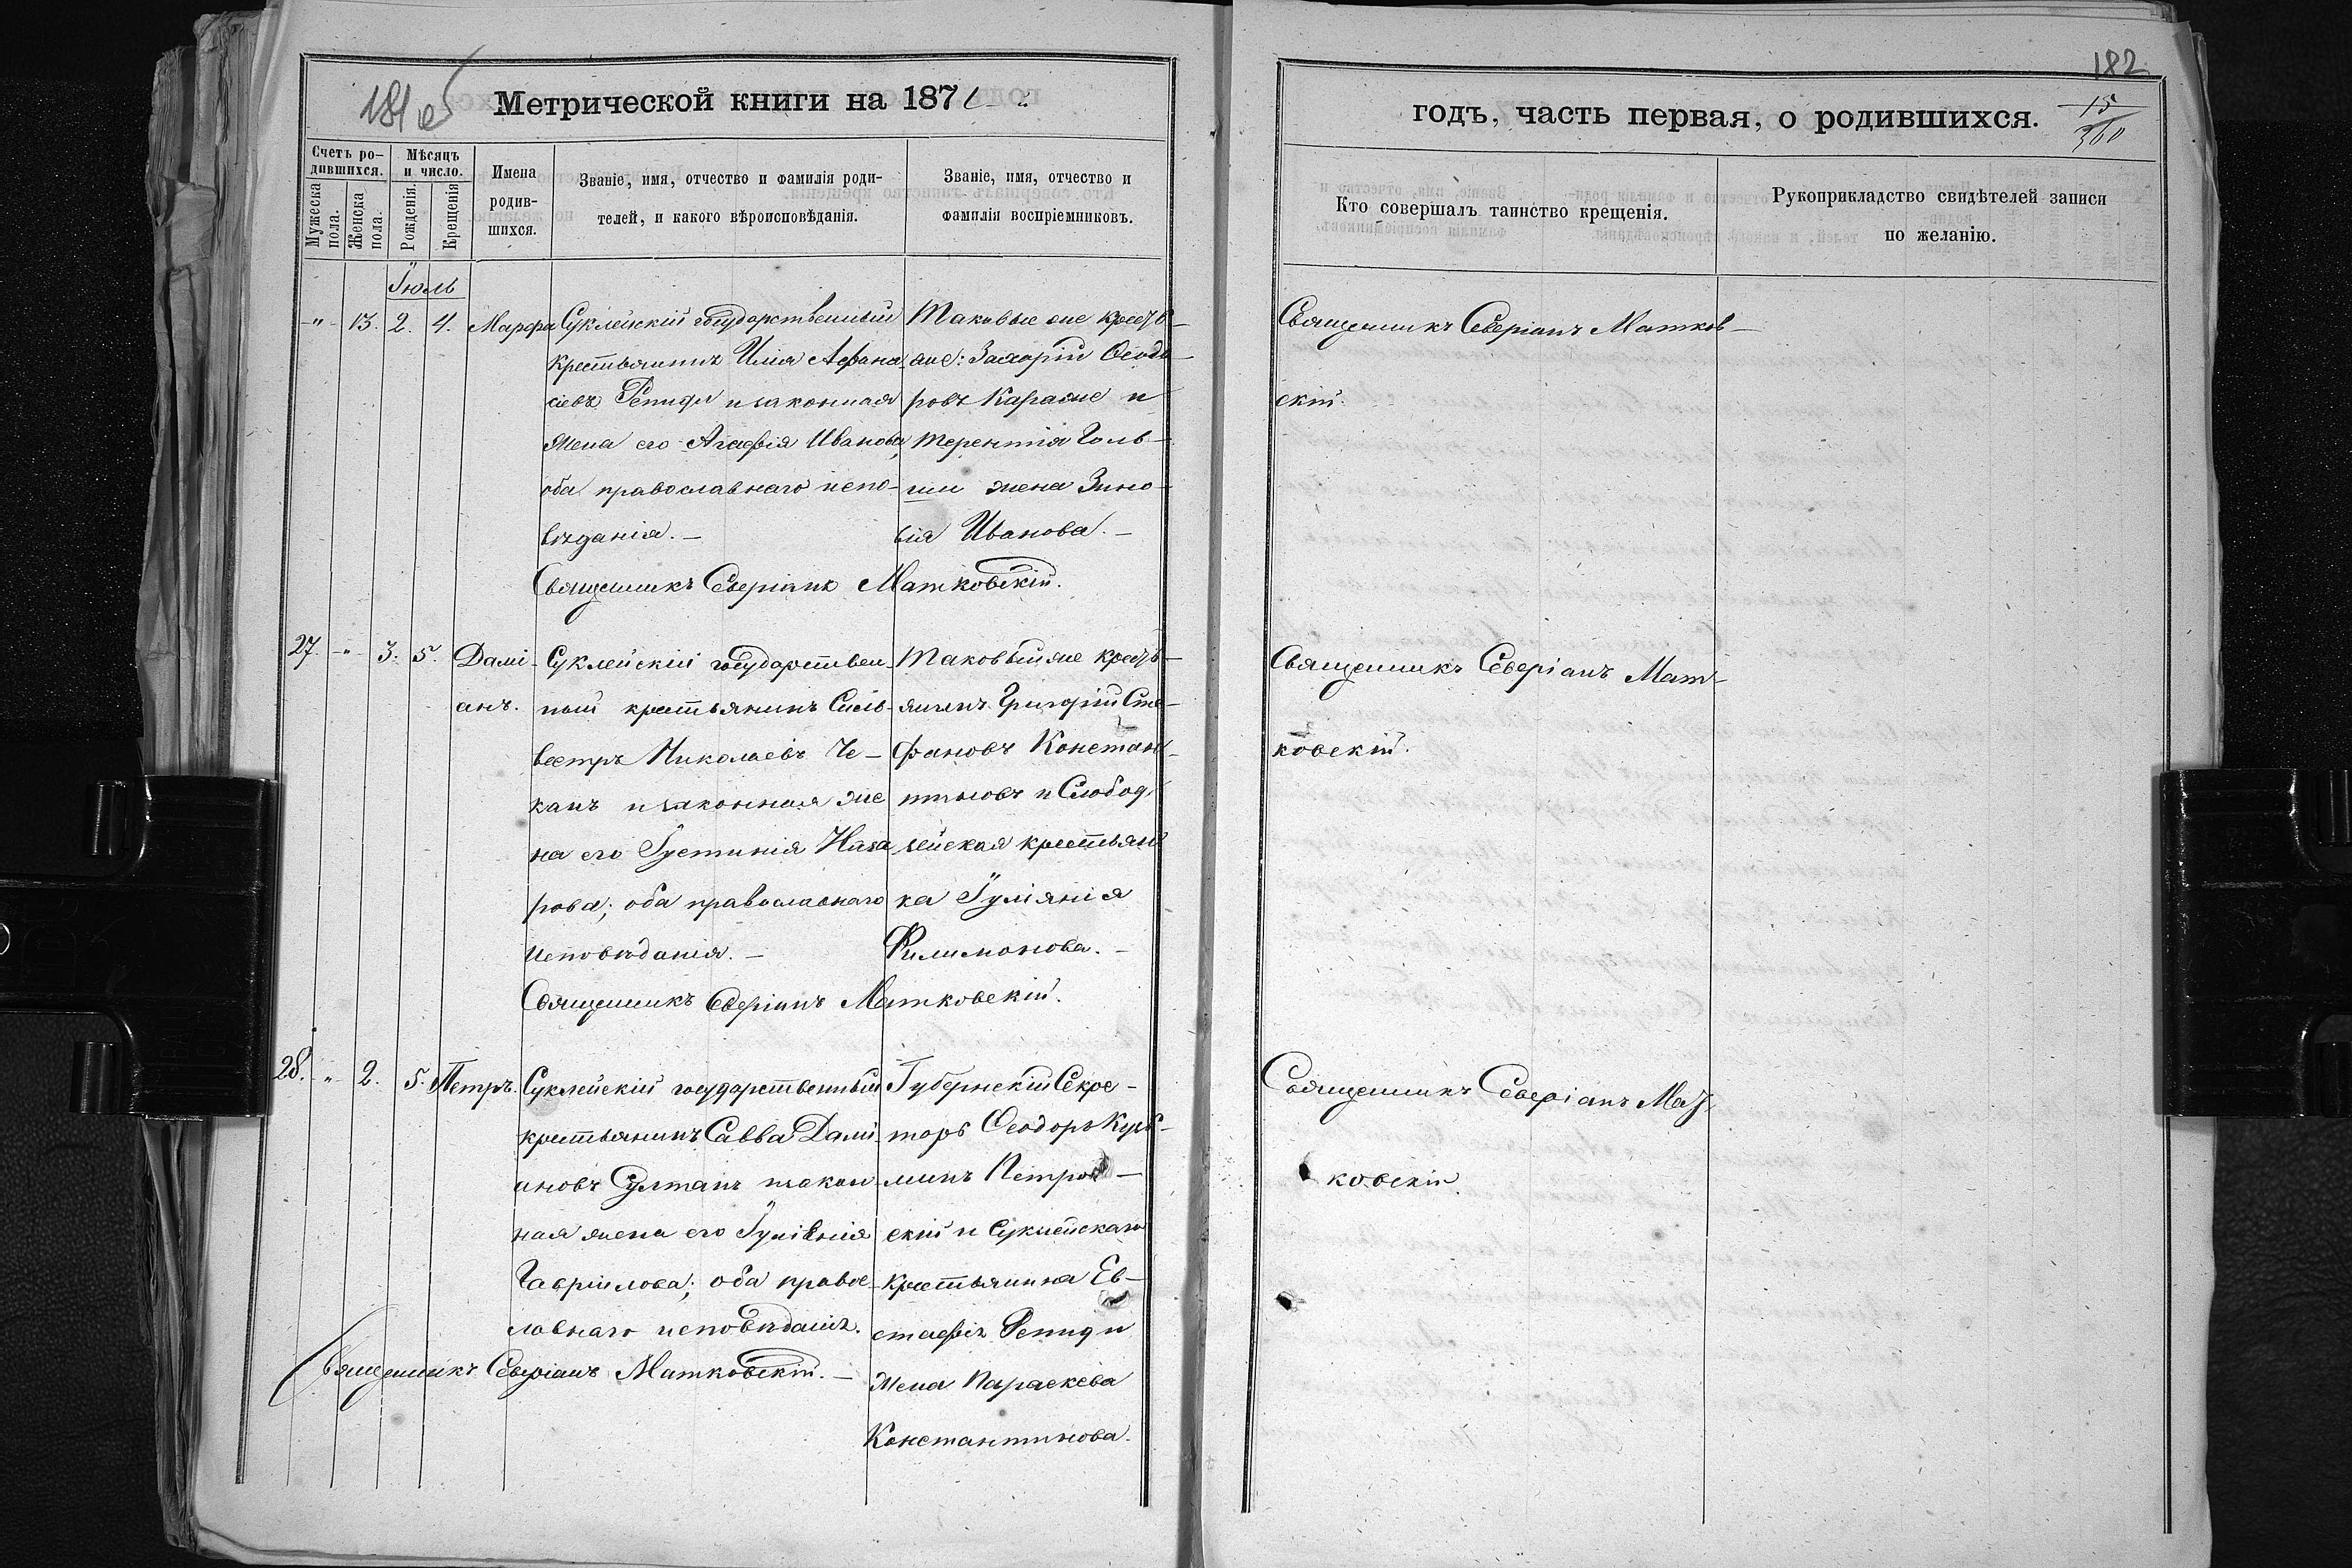 181 об
Метрической книги на 1871
Счетъ ро-
дившихся.
Мужеска пола.
Женска пола.
Мѣсяцъ
и число.
Рожденія.
Крещенія
Имена
родив-
шихся.
Званіе, имя, отчество и фамилія роди-
телей, и какого вѣроисповѣданія.
Званіе, имя, отчество и
фамилія воспріемниковъ.
Іюль
-"- 13. 2. 4. Марѳа
Суклейскій государственный
крестьянинъ Илія Аѳана-
сіевъ Репиди и законная
жена его Агаѳія Иванова,
оба православнаго испо-
вѣданія. –
Таковые же крестья-
не: Захарій Ѳеодо-
ровъ Караже и
Терентія Голь-
жена Зино-
вія Иванова. –
Священникъ Северіанъ Матковскій.
27. -"- 3. 5. Дамі-
анъ.
Суклейскій государствен-
ный крестьянинъ Силь-
вестръ Николаевъ Че-
канъ и законная же
на его Іустинія Наза
рова; оба православнаго
исповѣданія. –
Таковый же кресть-
янинъ Григорій Сте-
фановъ Констан-
тиновъ и Слобод.
зейская крестьян
ка Іуліянія
Филимонова. –
Священникъ Северіанъ Матковскій.
28. " 2. 5. Петръ.
Суклейскій государственный
крестьянинъ Савва Дамі-
ановъ Султанъ и закон
ная жена его Іуліянія
Гавріилова; оба правос-
лавнаго исповѣданія.
Губернскій Секре-
торь Ѳеодоръ Кузь-
минъ Петров-
скій и Суклейскаго
крестьянина Ев-
стафія Репиди
жена Параскева
Константинова.
Священникъ Северіанъ Матковскій. –
182
годъ, часть первая, о родившихся.
15
360
Кто совершалъ таинство крещенія.
Рукоприкладство свидѣтелей записи
по желанію.
Священникъ Северіанъ Матков-
скій.
Священникъ Северіанъ Мат-
ковскій.
Священникъ Северіанъ Мат-
ковскій.